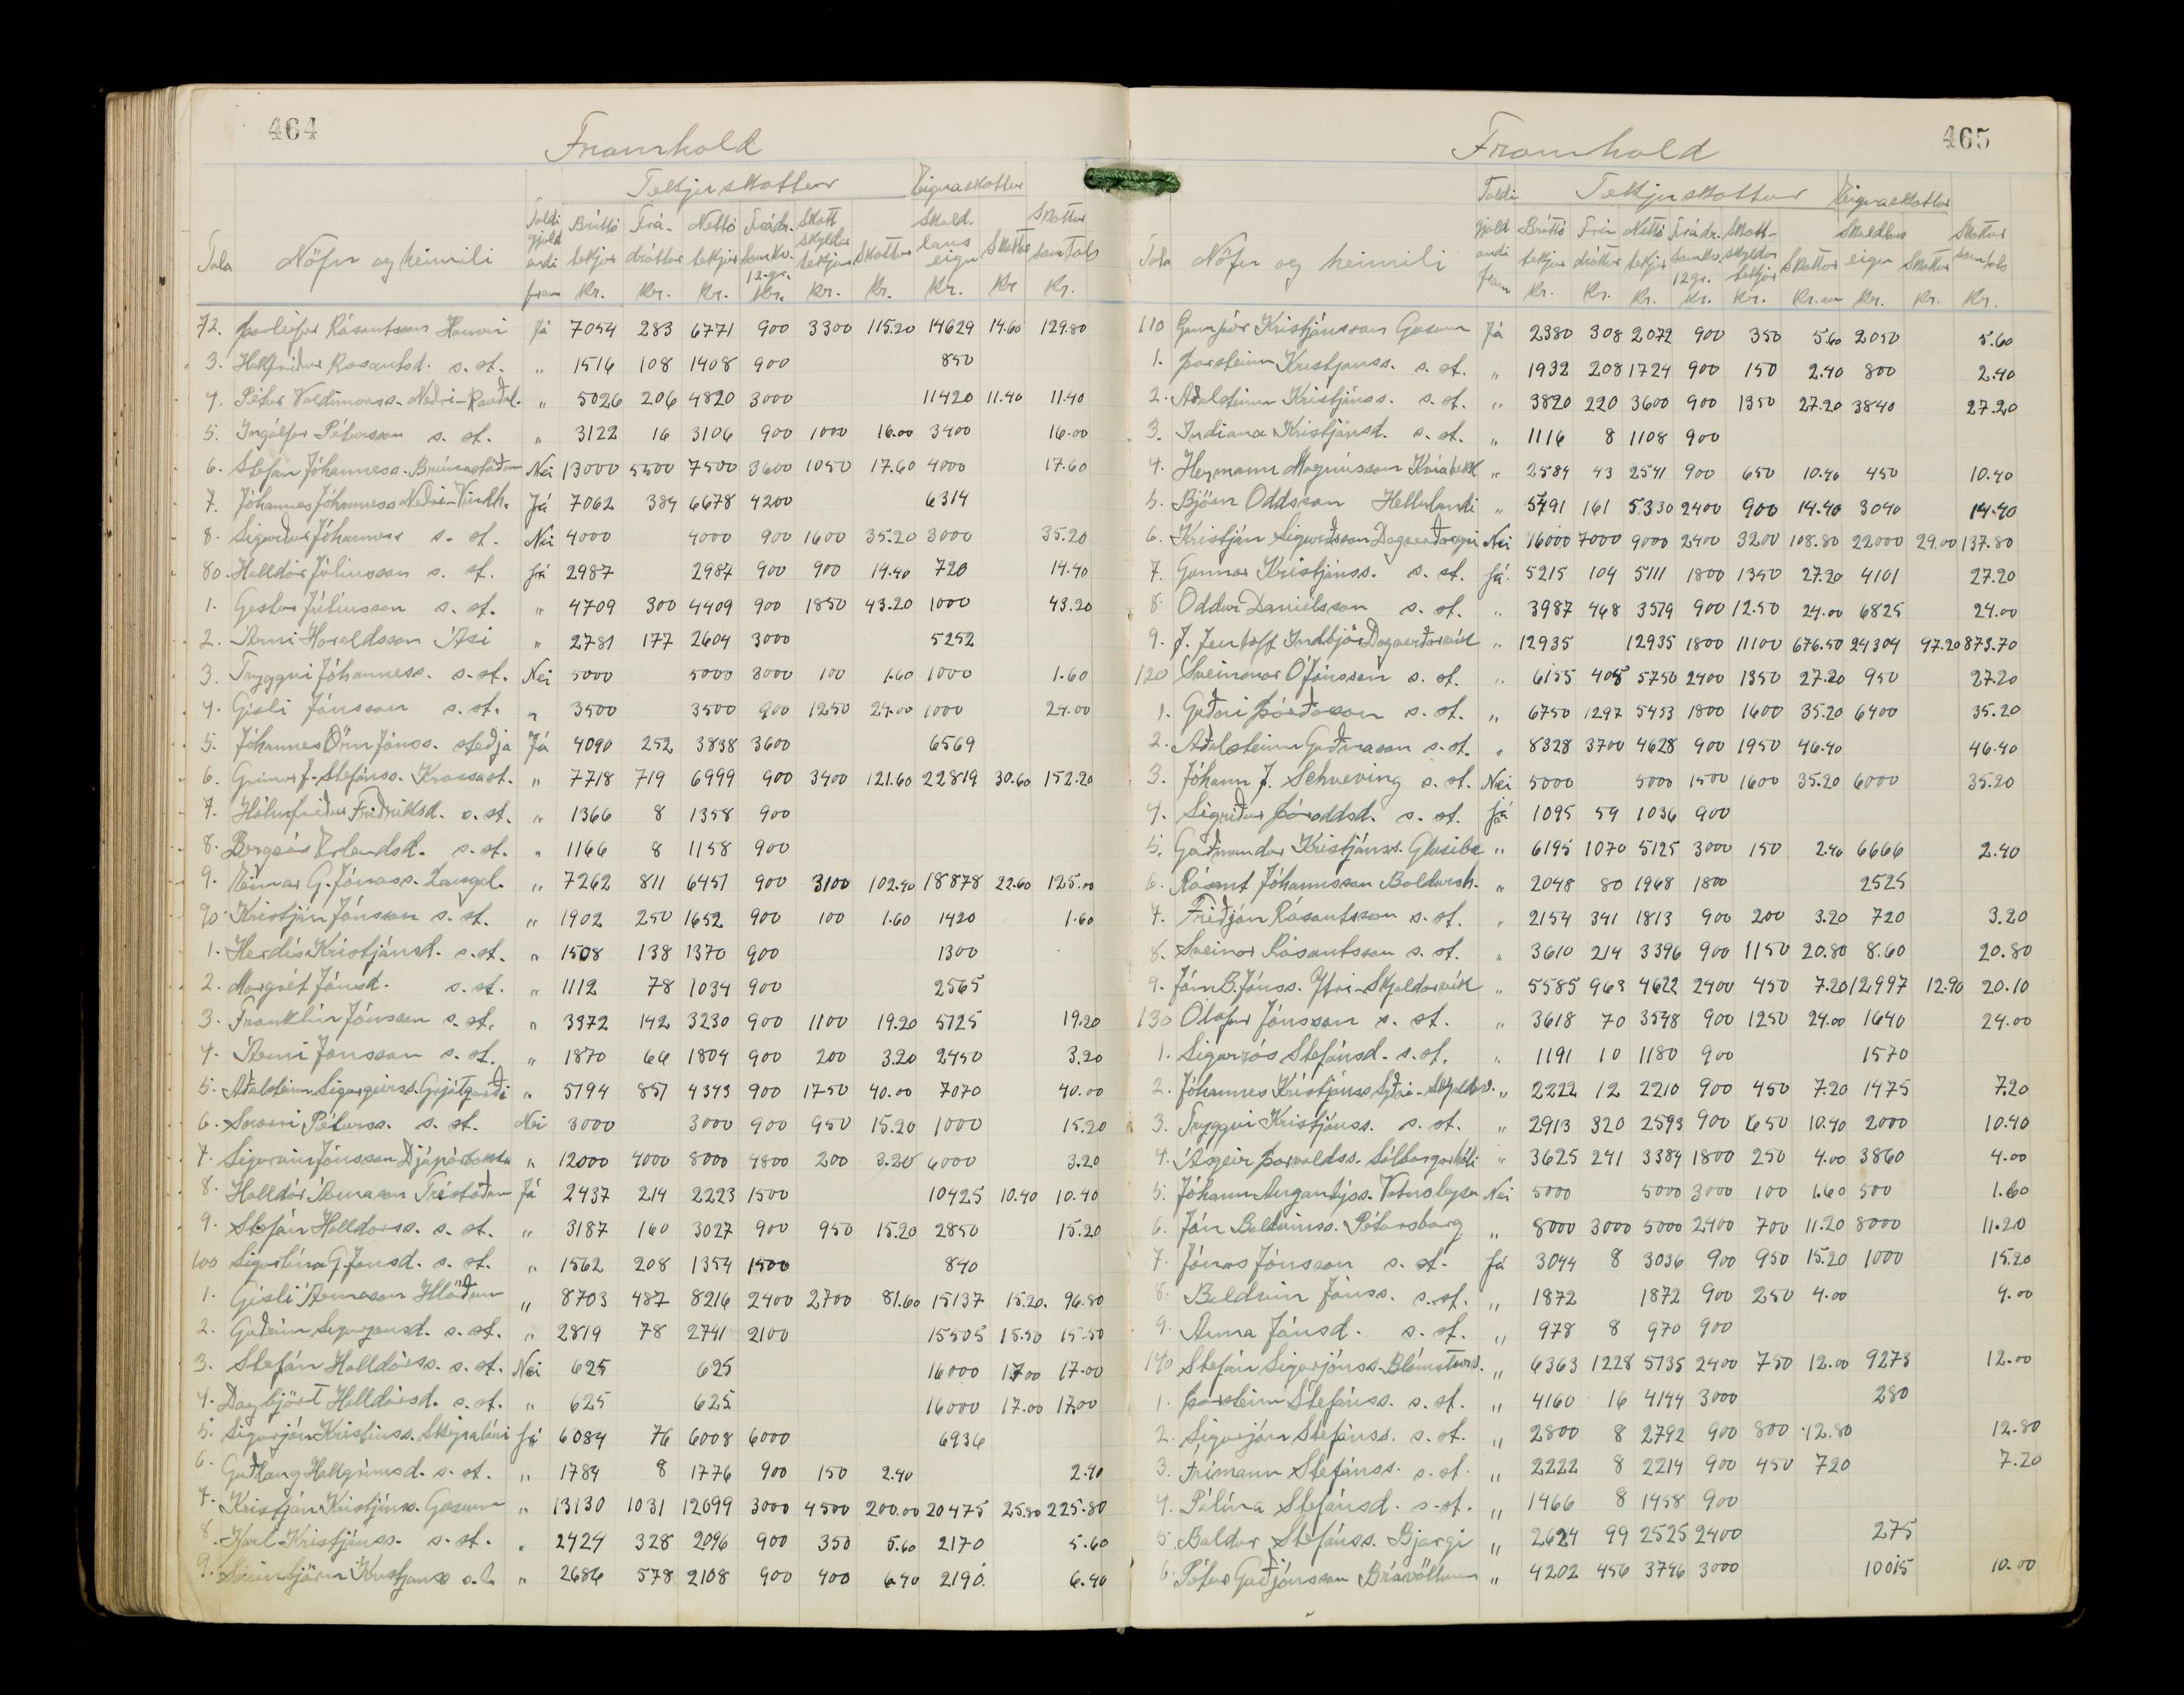 464
Framhald
Tekjuskattur Eignaskattur
Tala Nöfn og heimili Taldi gjald andi fram Brúttó tekjur Kr. Frá- dráttur Kr. Nettó tekjur Kr. Frádr. samkv. 12. gr. Kr. Skatt skyldar tekjur Kr. Skattur Kr. Skuld. laus eign Kr. Skattur Kr Skattur samtals Kr.
72. Þorleifur Rósantsson Hamri Já 7054 283 6771 900 3300 115.20 14629 14.60 129.80
3. Hallfríður Rósantsd. s. st. " 1516 108 1408 900 850
4. Pétur Valdimarss. Neðri-Rauðal. " 5026 206 4820 3000 11420 11.40 11.40
5. Ingólfur Pétursson s. st. " 3122 16 3106 900 1000 16.00 3400 16.00
6. Stefán Jóhanness. Brúnastöðum Nei 13000 5500 7500 3600 1050 17.60 4000 17.60
7. Jóhannes Jóhanness Neðri-Vindh. Já 7062 384 6678 4200 6314
8. Sigurður Jóhanness s. st. Nei 4000 4000 900 1600 35.20 3000 35.20
80. Halldór Júlíusson s. st. Já 2987 2987 900 900 14.40 720 14.40
1. Gestur Júlíusson s. st. " 4709 300 4409 900 1850 43.20 1000 43.20
2. Árni Haraldsson Ási " 2781 177 2604 3000 5252
3. Tryggvi Jóhanness. s. st. Nei 5000 5000 3000 100 1.60 1000 1.60
4. Gísli Jónsson s. st. " 3500 3500 900 1250 24.00 1000 24.00
5. Jóhannes Örn Jónss. Steðja Já 4090 252 3838 3600 6569
6. Grímur J. Stefánss. Krossast. " 7718 719 6999 900 3400 121.60 22819 30.60 152.20
7. Hólmfríður Friðriksd. s. st. " 1366 8 1358 900
8. Bergrós Erlendsd. s. st. " 1166 8 1158 900
9. Einar G. Jónass. Laugal. " 7262 811 6451 900 3100 102.40 18878 22.60 125.00
90. Kristján Jónsson s. st. " 1902 250 1652 900 100 1.60 1420 1.60
1. Herdís Kristjánsd. s. st. " 1508 138 1370 900 1300
2. Margrét Jónsd. s. st. " 1112 78 1034 900 2565
3. Franklín Jónsson s. st. " 3372 142 3230 900 1100 19.20 5725 19.20
4. Árni Jónsson s. st. " 1870 66 1804 900 200 3.20 2450 3.20
5. Aðalsteinn Sigurgeirss. Grjótgarði " 5194 851 4343 900 1750 40.00 7070 40.00
6. Snorri Péturss. s. st. Nei 3000 3000 900 950 15.20 1000 15.20
7. Sigurvin Jónsson Djúpárbakka " 12000 4000 8000 4800 200 3.20 6000 3.20
8. Halldór Árnason Tréstöðum Já 2437 214 2223 1500 10425 10.40 10.40
9. Stefán Halldórss. s. st. " 3187 160 3027 900 950 15.20 2850 15.20
100 Sigurlína G. Jónsd. s. st. " 1562 208 1354 1500 840
1. Gísli Árnason Hlöðum " 8703 487 8216 2400 2700 81.60 15137 15.20. 96.80
2. Guðrún Sigurjónsd. s. st. " 2819 78 2741 2100 15505 15.50 15.50
3. Stefán Halldórss. s. st. Nei 625 625 16000 17.00 17.00
4. Dagbjört Halldórsd. s. st. " 625 625 16000 17.00 17.00
5. Sigurjón Kristinss. Skipalóni Já 6084 76 6008 6000 6936
6. Guðlaug Hallgrímsd. s. st. " 1784 8 1776 900 150 2.40 2.40
7. Kristján Kristjánss. Gásum " 13130 1031 12099 3000 4500 200.00 20475 25.80 225.80
8. Karl Kristjánss. s. st. " 2424 328 2096 900 350 5.60 2170 5.60
9. Sveinbjörn Kristjánss s. st. " 2686 578 2108 900 400 6.40 2190. 6.40
465
Framhald
Tekjuskattur Eignaskattur
Tala Nöfn og heimili Taldi gjald andi fram Brúttó tekjur Kr. Frá dráttur Kr. Nettó tekjur Kr. Frádr. samkv. 12 gr. Kr. Skatt- skyldar tekjur Kr. Skattur Kr. Skuldlaus eign Kr. Skattur Kr. Skattur samtals Kr.
110 Gunnþór Kristjánsson Gásum Já 2380 308 2072 900 350 5.60 2050 5.60
1. Þorsteinn Kristjánss. s. st. " 1932 208 1724 900 150 2.40 800 2.40
2. Aðalsteinn Kristjánss. s. st. " 3820 220 3600 900 1350 27.20 3840 27.20
3. Indíana Kristjánsd. s. st. " 1116 8 1108 900
4. Hermann Magnússon " 2584 43 2541 900 650 10.40 450 10.40
5. Björn Oddsson Hellulandi " 5491 161 5330 2400 900 14.40 3040 14.40
6. Kristján Sigurðsson Dagverðareyri Nei 16000 7000 9000 2400 3200 108.80 22000 29.00 137.80
7. Gunnar Kristjánss. s. st. Já 5215 104 5111 1800 1350 27.20 4101 27.20
8. Oddur Daníelsson s. st. " 3987 468 3519 900 12.50 24.00 6825 24.00
9. J. Jentoft Indbjör Dagverðarvík " 12935 12935 1800 11100 676.50 24304 97.20 873.70
120 Sveinmar Ó Jónsson s. st. " 6155 405 5750 2400 1350 27.20 950 27.20
1. Guðni Þórðarson s. st. " 6750 1297 5453 1800 1600 35.20 6400 35.20
2. Aðalsteinn Guðnason s. st. " 8328 3700 4628 900 1950 46.40 46.40
3. Jóhann J. Scheving s. st. Nei 5000 5000 1500 1600 35.20 6000 35.20
4. Sigríður Þóroddsd. s. st. Já 1095 59 1036 900
5. Guðmundur Kristjánss. Glæsibæ " 6195 1070 5125 3000 150 2.40 6666 2.40
6. Rósant Jóhannsson Baldursh. " 2048 80 1968 1800 2525
7. Friðjón Rósantsson s. st. " 2154 341 1813 900 200 3.20 720 3.20
8. Steinar Rósantsson s. st. " 3610 214 3396 900 1150 20.80 8.60 20.80
9. Jón B. Jónss. Ytri-Skjaldarvík " 5585 963 4622 2400 450 7.20 12997 12.90 20.10
130 Ólafur Jónsson s. st. " 3618 70 3548 900 1250 24.00 1640 24.00
1. Sigurrós Stefánsd. s. st. " 1191 10 1180 900 1570
2. Jóhannes Kristjánss Syðri-Skjaldarv. " 2222 12 2210 900 450 7.20 1475 7.20
3. Tryggvi Kristjánss. s. st. " 2913 320 2593 900 650 10.40 2000 10.40
4. Ásgeir Þorvaldss. Sólborgarhóli " 3625 241 3384 1800 250 4.00 3860 4.00
5. Jóhann Angantýss. Vatnsleysu Nei 5000 5000 3000 100 1.60 500 1.60
6. Jón Baldvinss. Pétursborg " 8000 3000 5000 2400 700 11.20 8000 11.20
7. Jónas Jónsson s. st. Já 3044 8 3036 900 950 15.20 1000 15.20
8. Baldvin Jónss. s. st. " 1872 1872 900 250 4.00 4.00
9. Anna Jónsd. s. st. " 978 8 970 900
140 Stefán Sigurjónss. Blómsturv. " 6363 1228 5135 2400 750 12.00 9273 12.00
1. Þorsteinn Stefánss. s. st. " 4160 16 4144 3000 280
2. Sigurjón Stefánss. s. st. " 2800 8 2792 900 800 12.80 12.80
3. Frímann Stefánss. s. st. " 2222 8 2214 900 450 720 7.20
4. Pálína Stefánsd. s. st. " 1466 8 1458 900
5. Baldur Stefánss. Bjargi " 2624 99 2525 2400 275
6. Pétur Guðjónsson Brávöllum " 4202 456 3746 3000 10015 10.00